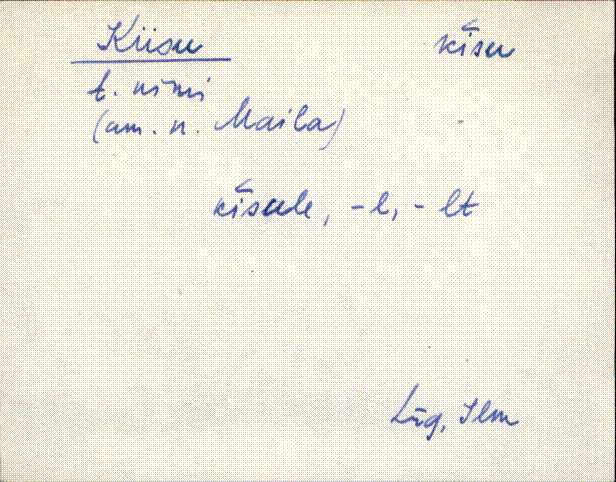 Kiisu kīsu
t. nimi
(am. n. Maila)
kīsule, -l, -lt
Lüg, Ilm